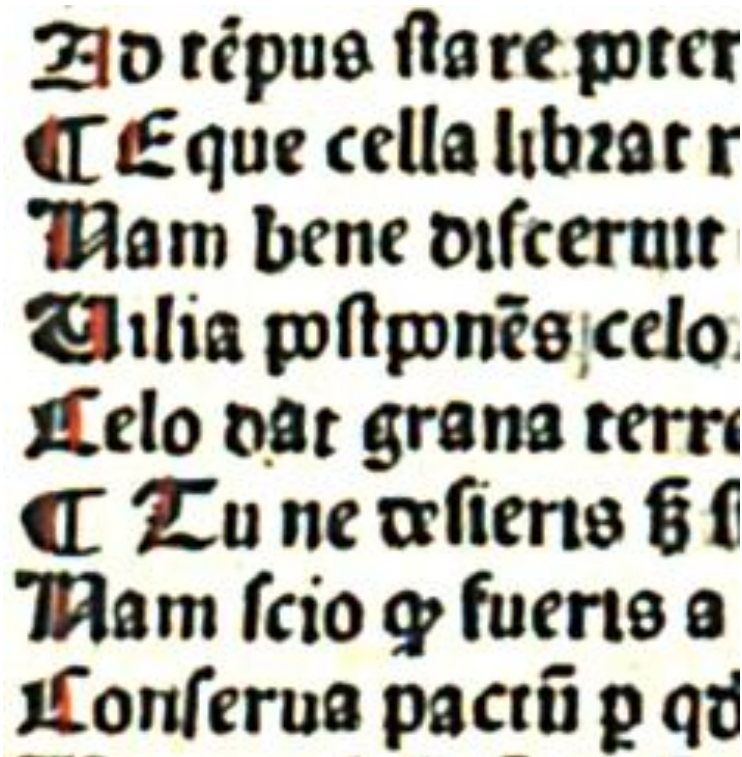 Ad tēpus ſtare poter
¶ Eque cella librat r
Nam bene diſcernit
Vilia poſtponēs celo
Celo dāt grana terre
¶ Tu ne deſieris ſꝫ ſt
Nam ſcio ꝙ fueris a
Conſerua pactū ꝑ qd